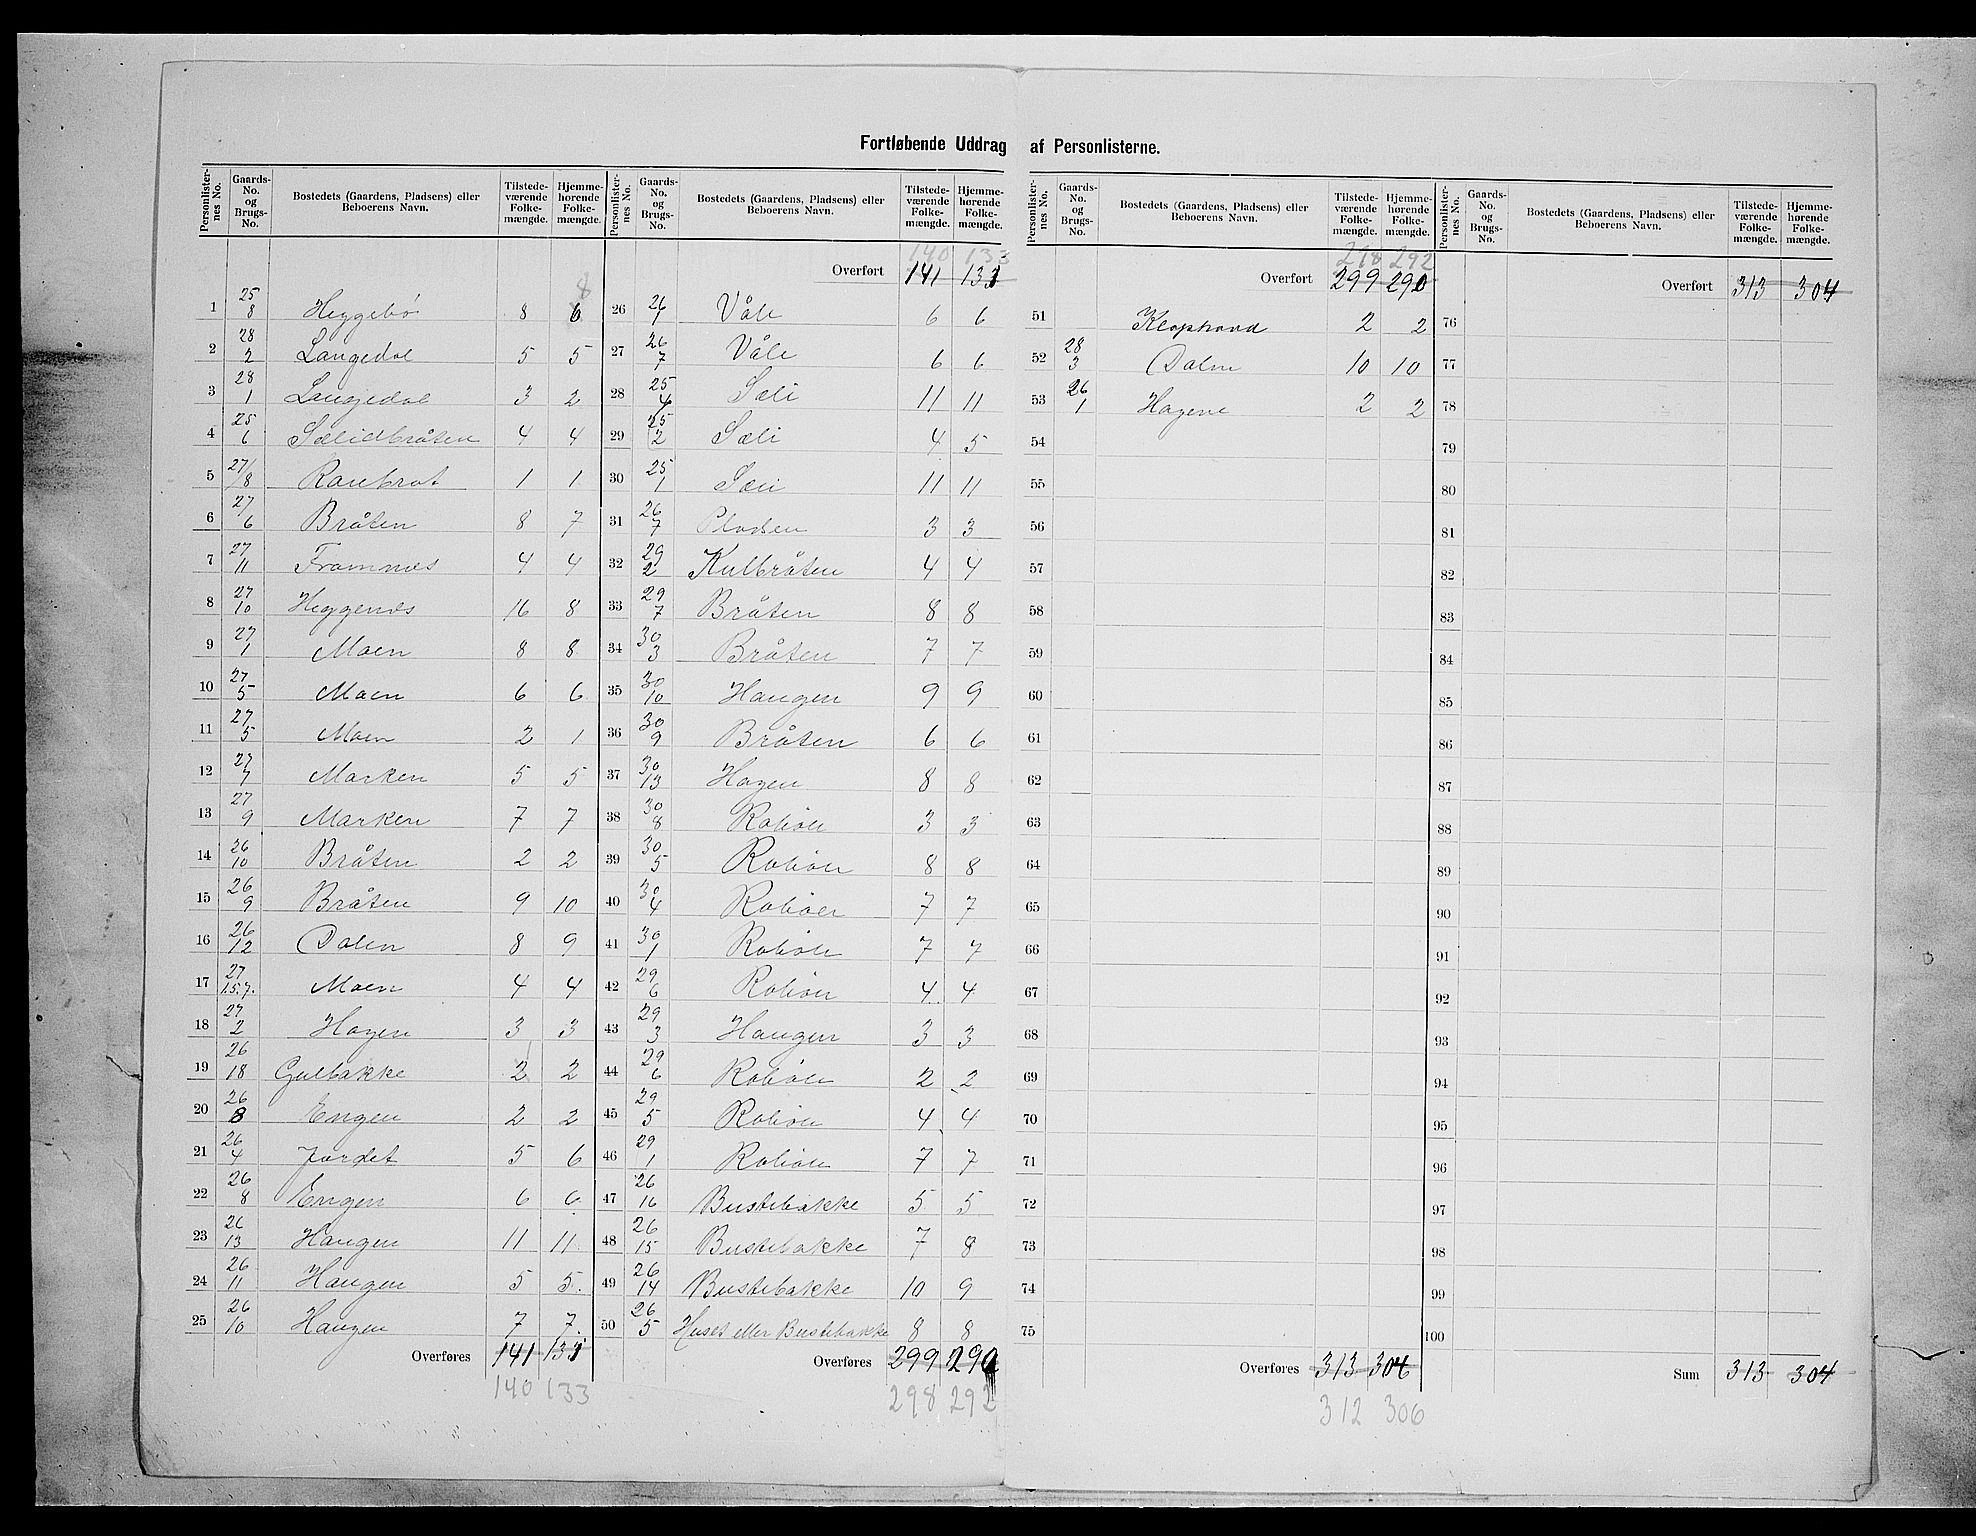 Fortløbende Uddrag af Personlisterne.
Personlister-nes No. | Gaards-No. og Brugs-No. | Bostedets (Gaardens, Pladsens) eller Beboerens Navn. | Tilstede-værende Folke-mængde. | Hjemme-hørende Folke-mængde.
1 25/8 Heggebø 8 6 8
2 28/2 Langedal 5 5
3 28/1 Langedal 3 2
4 25/6 Sælidbråten 4 4
5 27/8 1 1
6 27/6 Bråten 8 7
7 27/11 Framnæs 4 4
8 27/10 Heggenæs 16 8
9 27/1 Moen 8 8
10 27/5 Moen 6 6
11 27/5 Moen 2 1
12 27/7 Marken 5 5
13 27/9 Marken 7 7
14 26/10 Bråten 2 2
15 26/9 Bråten 9 10
16 26/12 Dalen 8 9
17 27/1.5.7. Moen 4 4
18 27/2 Hagen 3 3
19 26/18 Gulbakke 2 2
20 26/8 Engen 2 2
21 26/4 Jordet 5 6
22 26/8 Engen 6 6
23 26/13 Haugen 11 11
24 26/11 Haugen 5 5
25 26/10 Haugen 7 7
Overføres 141 131
140 133
Personlister-nes No. | Gaards-No. og Brugs-No. | Bostedets (Gaardens, Pladsens) eller Beboerens Navn. | Tilstede-værende Folke-mængde. | Hjemme-hørende Folke-mængde.
140 133
Overført 141 131
26 26/1 Våle 6 6
27 26/7 Våle 6 6
28 25/4 Sæli 11 11
29 25/2 Sæli 4 5
30 25/1 Sæli 11 11
31 26/7 3 3
32 29/2 Kulbråten 4 4
33 29/7 Bråten 8 8
34 30/3 Bråten 7 7
35 30/10 Haugen 9 9
36 30/9 Bråten 6 6
37 30/13 Hagen 8 8
38 30/8 Robøle 3 3
39 30/5 Robøle 8 8
40 30/4 Robøle 7 7
41 30/1 Robøle 7 7
42 29/6 Robøle 4 4
43 29/3 Haugen 3 3
44 29/6 Robøle 2 2
45 29/5 Robøle 4 4
46 29/1 Robøle 7 7
47 26/16 Bustebakke 5 5
48 26/15 Bustebakke 7 8
49 26/14 Bustebakke 10 9
50 26/5 Huset eller Bustebakke 8 8
Overføres 299 290
298 292
Personlister-nes No. | Gaards-No. og Brugs-No. | Bostedets (Gaardens, Pladsens) eller Beboerens Navn. | Tilstede-værende Folke-mængde. | Hjemme-hørende Folke-mængde.
298 292
Overført 299 290
51 2 2
52 28/3 10 10
53 26/1 Hagene 2 2
54
55
56
57
58
59
60
61
62
63
64
65
66
67
68
69
70
71
72
73
74
75
Overføres 313 304
312 306
Personlister-nes No. | Gaards-No. og Brugs-No. | Bostedets (Gaardens, Pladsens) eller Beboerens Navn. | Tilstede-værende Folke-mængde. | Hjemme-hørende Folke-mængde.
Overført 313 304
76
77
78
79
80
81
82
83
84
85
86
87
88
89
90
91
92
93
94
95
96
97
98
99
100
Sum 313 304